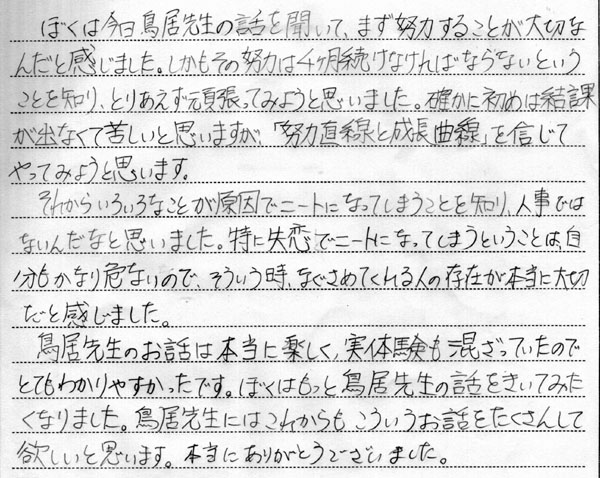 ぼくは今日鳥居先生の話を聞いて、まず努力することが大切な
んだと感じました。しかもその努力は4ヶ月続けなければならないという
ことを知り、とりあえず頑張ってみようと思いました。確かに初めは結課
が出なくて苦しいと思いますが、「努力直線と成長曲線」を信じて
やってみようと思います。
それからいろいろなことが原因でニートになってしまうことを知り、人事では
ないんだなと思いました。特に失恋でニートになってしまうということは、自
分もかなり危ないので、そういう時、なぐさめてくれる人の存在が本当に大切
だと感じました。
鳥居先生のお話は本当に楽しく、実体験も混ざっていたので
とてもわかりやすかったです。ぼくはもっと鳥居先生の話をきいてみた
くなりました。鳥居先生にはこれからもこういうお話をたくさんして
欲しいと思います。本当にありがとうございました。